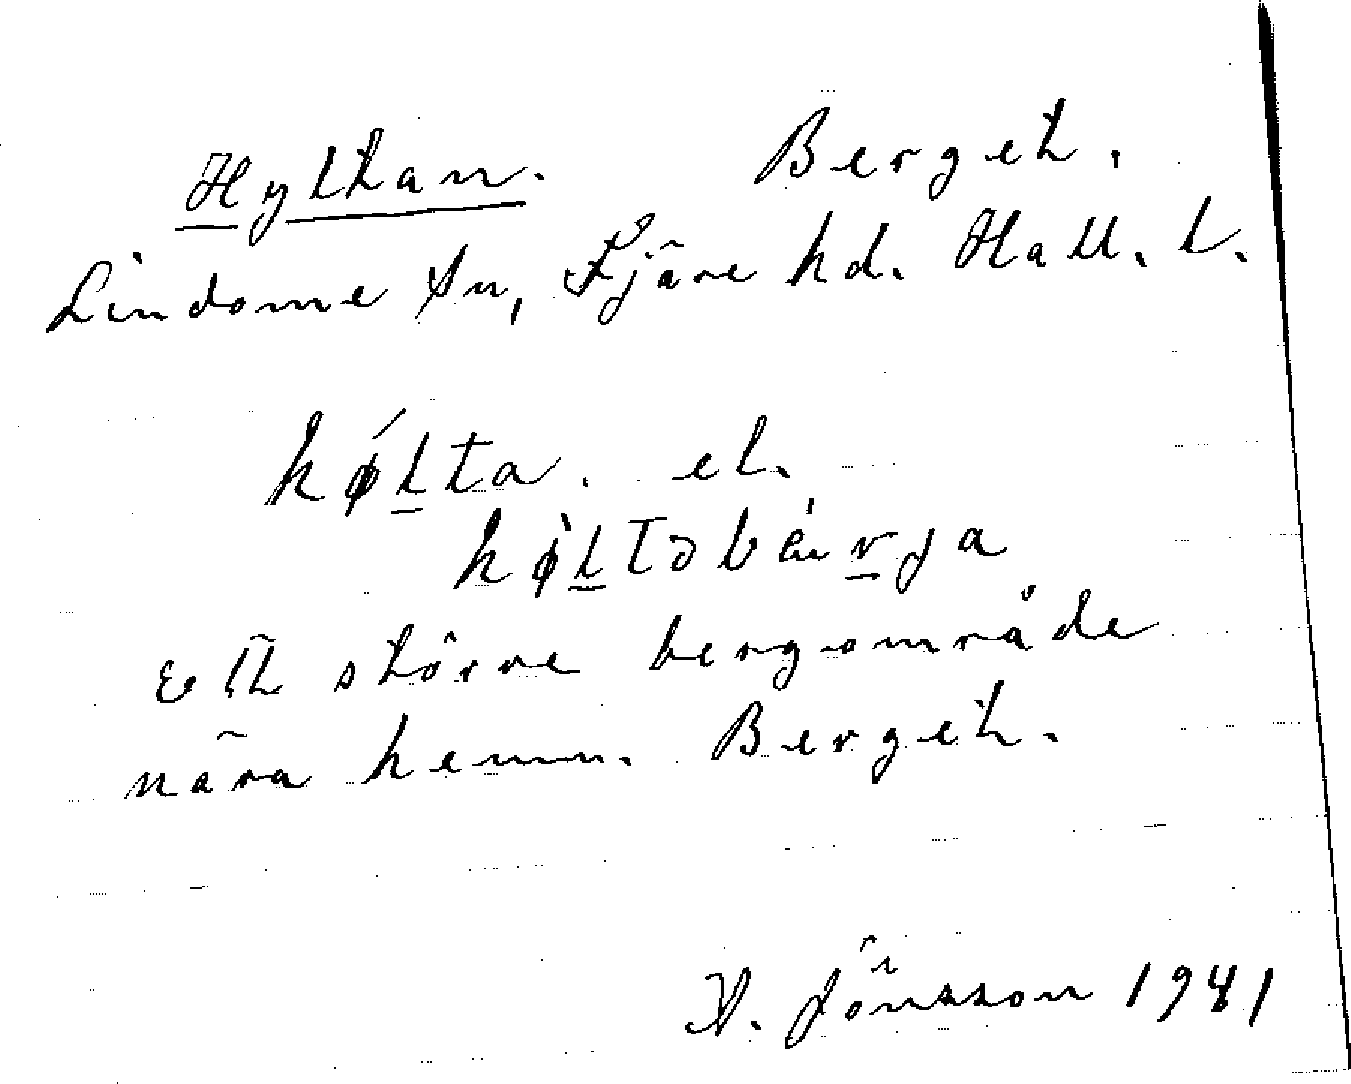 Hyltan. Berget.
Lindome sn, Fjäre hd. Hall. l.
hǿl̲ta. el.
hø̀l̲təbæ̀r̲ja
Ett större bergområde
nära hemm. Berget.
V. Jönsson 1941